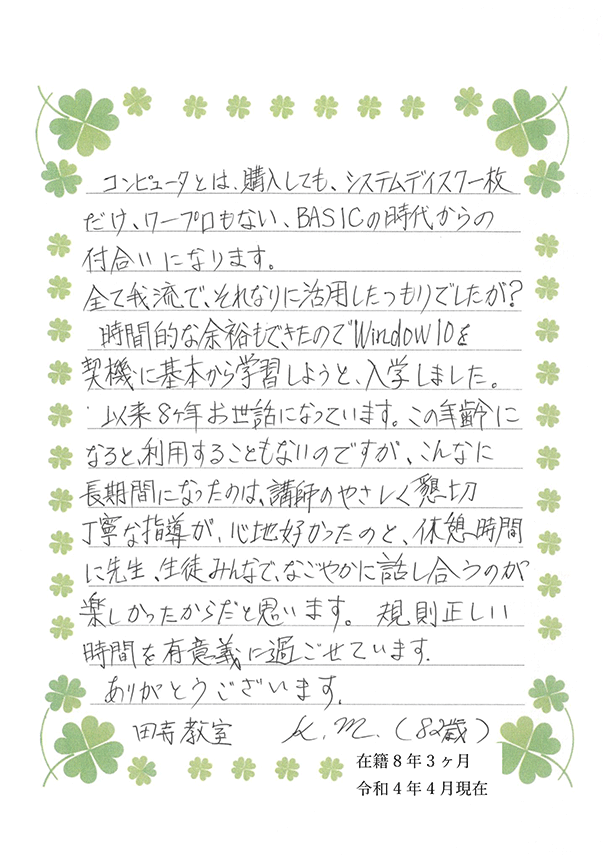 コンピュータとは、購入しても、システムディスク一枚
だけ、ワープロもない、BASICの時代からの
付合いになります。
全て我流で、それなりに活用したつもりでしたが?
時間的な余裕もできたのでWindow10を
契機に基本から学習しようと、入学しました。
以来8ヶ年お世話になっています。この年齢に
なると、利用することもないのですが、こんなに
長期間になったのは、講師のやさしく懇切
丁寧な指導が、心地好かったのと、休憩時間
に先生、生徒みんなで、なごやかに話し合うのが
楽しかったからだと思います。規則正しい
時間を有意義に過ごせています.
ありがとうございます.
田寺教室 K.M.(82歳)
在籍8年3ヶ月
令和4年4月現在